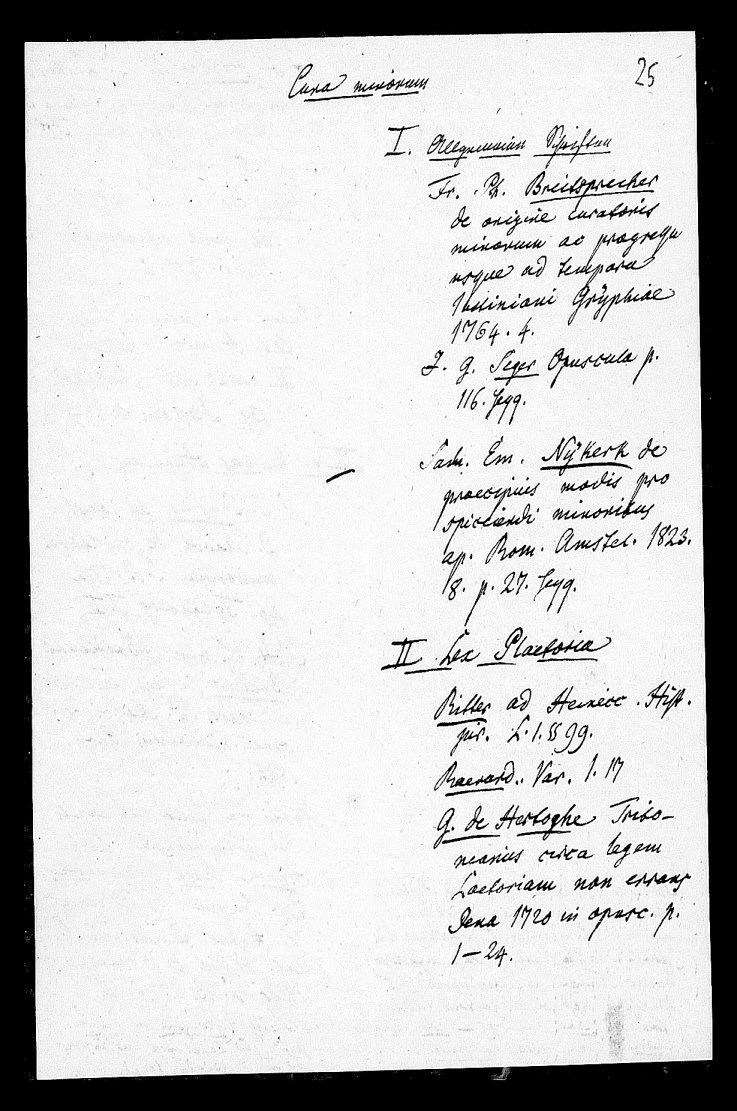 25
Cura minorum
I. Allgemeinen Schriften
Fr. Ph. Breitsprecher
de origine curatoris
minorum ac progressu
usque ad tempora
Justiniani Gryphiae
1764. 4.
J. G. Seger Opuscula p.
116. seqq.
Sam. Em. Nÿkerk de
praecipuis modis pro
spiciendi minoribus
ap. Rom. Amstel. 1823.
8. p. 27. seqq.
II Lex Plaetoria
Ritter ad Heinecc. Hist.
jur. L. 1. §§ 99.
Raevard. Var. I. 17
G. de Hertoghe Tribo-
nianus circa legem
Laetoriam non errans
Jena 1720 in opusc. p.
1–24.